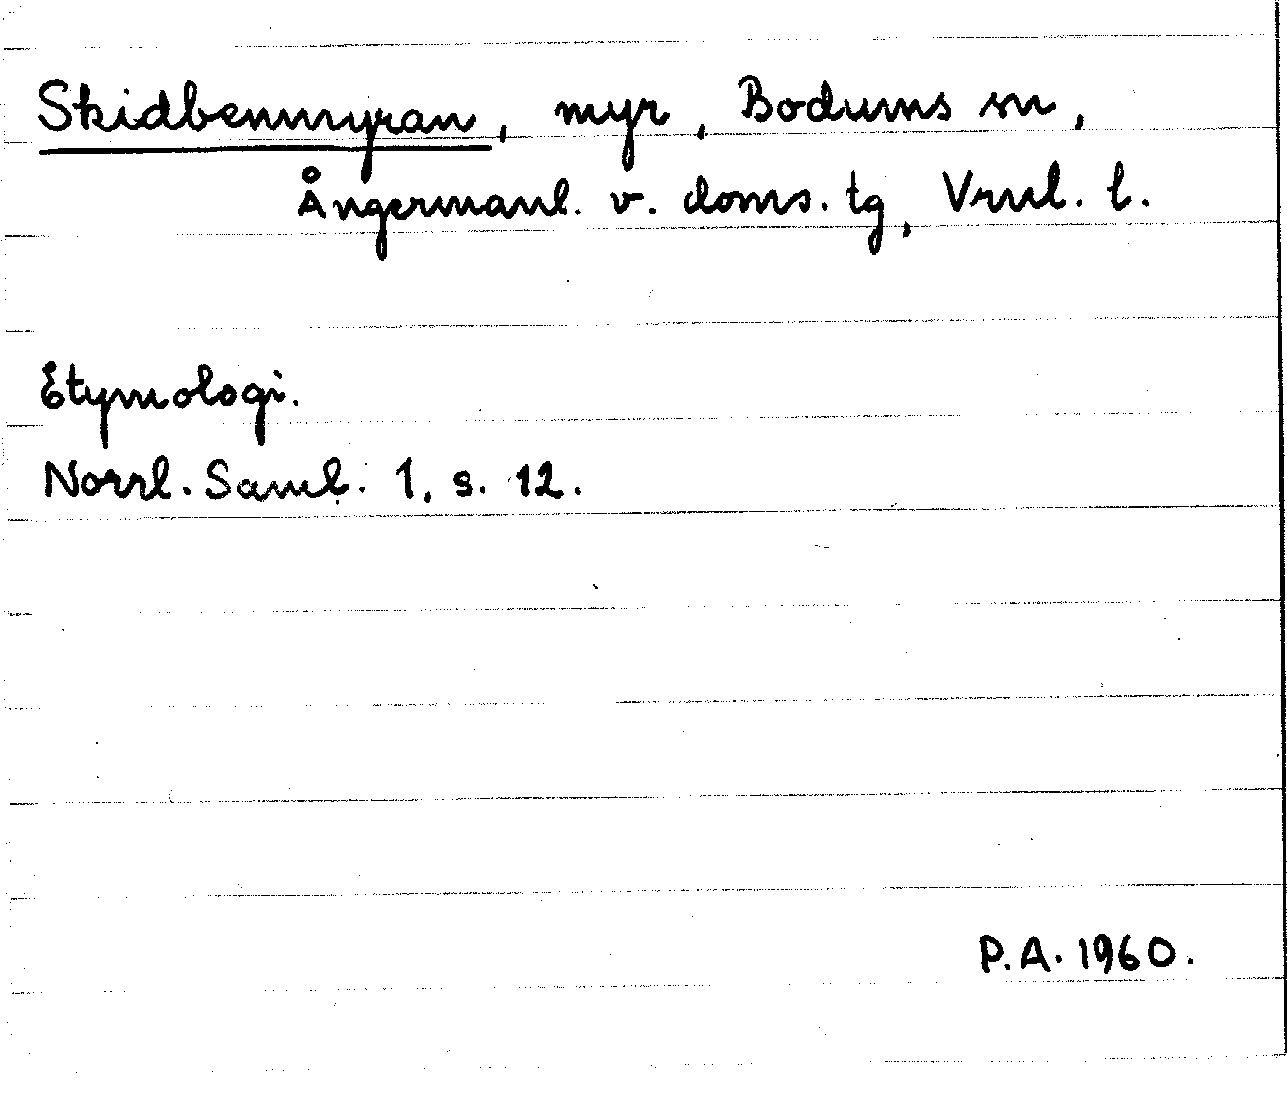 Skidbenmyran, myr, Bodums sn,
Ångermanl. v. doms. tg, Vrnl. l.
Etymologi.
Norrl. Saml. 1, s. 12.
P.A. 1960.